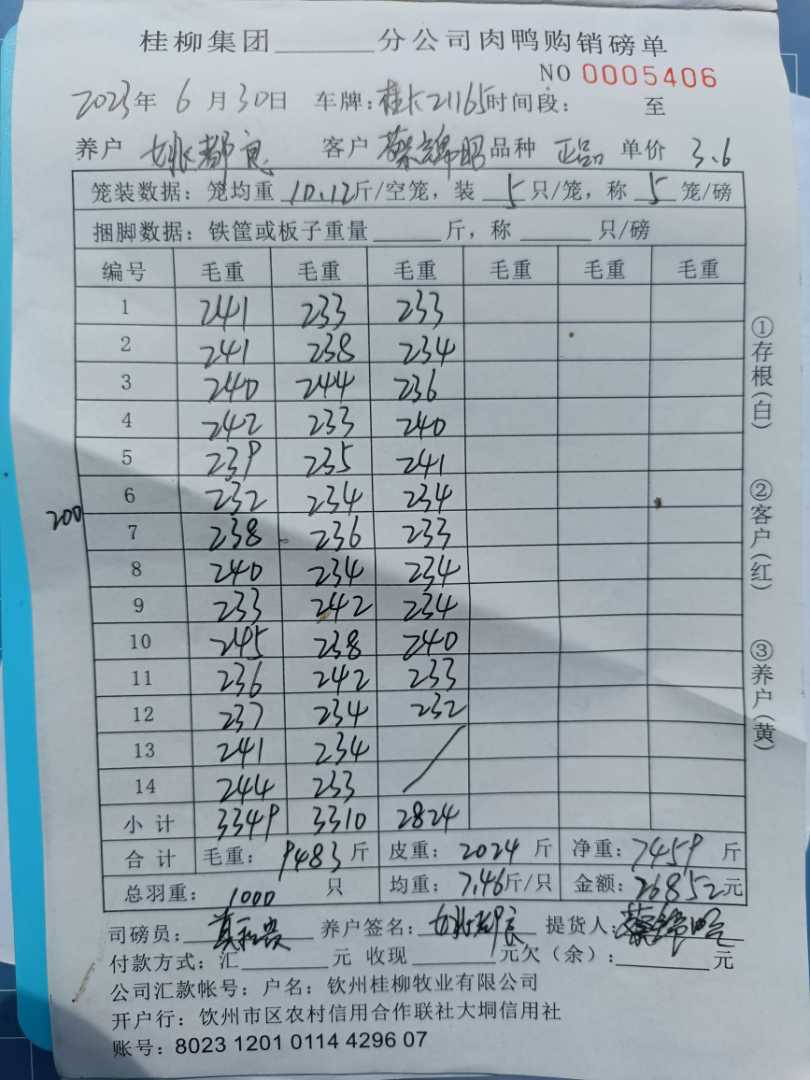 桂柳集团______分公司肉鸭购销磅单
NO 0005406
2023年 6月30日 车牌:桂K21165时间段: 至
养户 姚都良 客户 蔡锦昭 品种 正品 单价 3.6
笼装数据:笼均重 10.12斤/空笼,装 5 只/笼,称 5 笼/磅
捆脚数据:铁筐或板子重量______斤,称______只/磅
编号 毛重 毛重 毛重 毛重 毛重 毛重
1 241 233 233
2 241 238 234
3 240 244 236
4 242 233 240
5 239 235 241
6 232 234 234
200
7 238 236 233
8 240 234 234
9 233 242 234
10 245 238 240
11 236 242 233
12 237 234 232
13 241 234
14 244 233
小计 3349 3310 2824
合计 毛重: 9483 斤 皮重: 2024 斤 净重: 7459 斤
总羽重: 1000 只 均重: 7.46斤/只 金额: 26852元
司磅员: 养户签名: 姚都良 提货人: 蔡锦昭
付款方式:汇______元 收现______元欠(余):______元
公司汇款帐号:户名:钦州桂柳牧业有限公司
开户行:钦州市区农村信用合作联社大垌信用社
账号:8023 1201 0114 4296 07
①存根(白)
②客户(红)
③养户(黄)